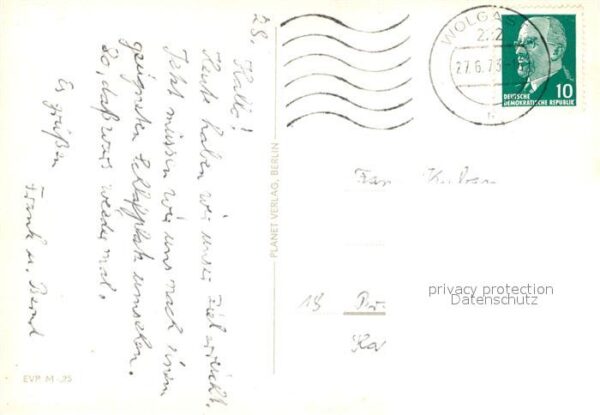 28.
Hallo!
Heute haben wir unser Ziel erreicht.
Jetzt müssen wir uns nach einem
geeigneten Schlafplatz umsehen.
So, daß wars wieder mal.
Es grüßen
Frank u. Bernd
EVP M -,25
PLANET VERLAG, BERLIN
WOLGAST
27.6.73
DEUTSCHE
DEMOKRATISCHE REPUBLIK
10
Fam
18
privacy protection
Datenschutz